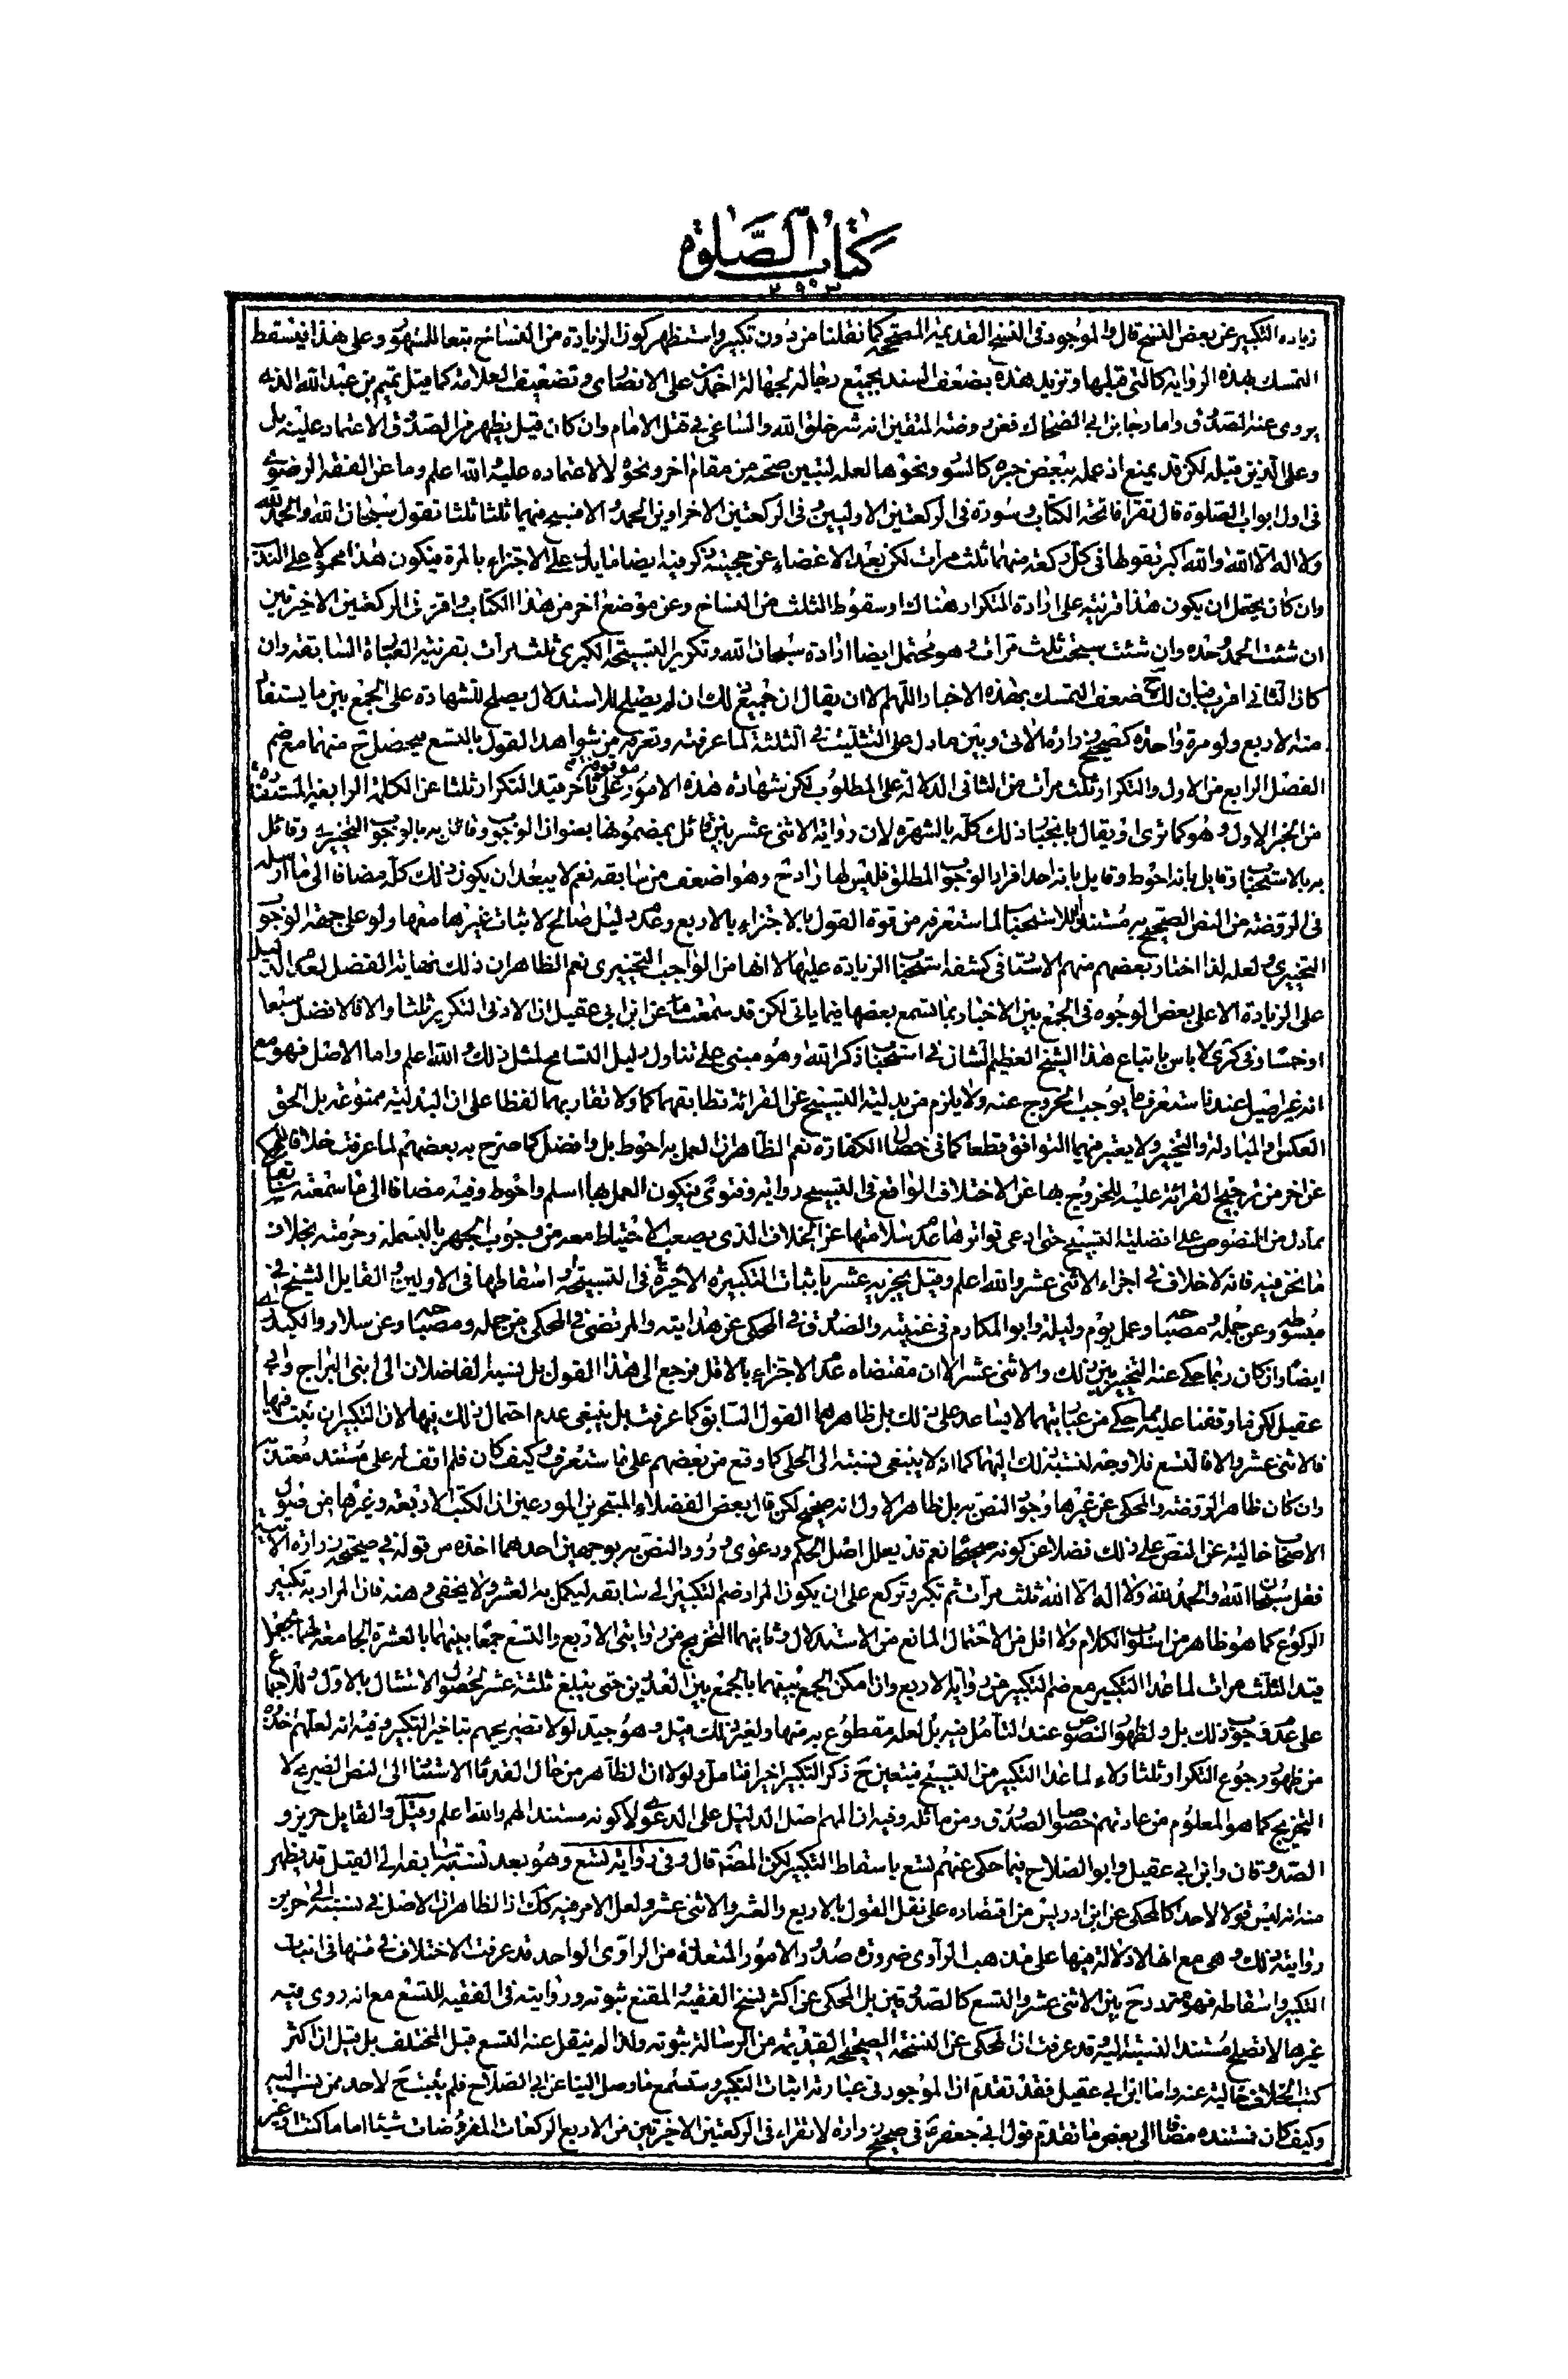 كتاب الصلوة
٢٩٣
زيادة التكبير عن بعض النسخ قال والموجود في النسخ القديمة المصححة كما نقلنا من دون تكبير واستظهر كون الزيادة من النساخ تبعا للمشهور وعلى هذا فيسقط
التمسك بهذه الرواية كالتي قبلها وتزيد هذه بضعف السند بجميع رجاله لجهالة احمد بن على الانصارى وتضعيف العلامة كما قيل تميم بن عبد الله الذى
يروى عنه الصدوق واما رجا بن ابي الضحاك فعن روضة المتقين انه شر خلق الله والساعي في قتل الامام وان كان قيل يظهر من الصدوق الاعتماد عليه بل
وعلى الذين قبله لكن قد يمنع اذ عمله ببعض خبره كالسور ونحوها لعله لتبين صحته من مقام اخر ونحوه لا لاعتماده عليه والله اعلم وما عن الفقه الرضوى
في اول ابواب الصلوة قال تقرا فاتحة الكتاب وسورة في الركعتين الاوليين وفي الركعتين الاخراوين الحمد والا فسبح فيهما ثلثا ثلثا تقول سبحان الله والحمد لله
ولا اله الا الله والله اكبر تقولها في كل ركعة منهما ثلث مرات لكن بعد الاغضاء عن حجيته ذكر فيه ايضا ما يدل على الاجتزاء بالمرة فيكون هذا محمولا على الندب
وان كان يحتمل ان يكون هذا قرينة على ارادة التكرار هناك او سقوط الثلث من النساخ وعن موضع اخر من هذا الكتاب واقرء في الركعتين الاخيرتين
ان شئت الحمد وحده وان شئت سبحت ثلث مرات وهو محتمل ايضا ارادة سبحان الله وتكرير التسبيحة الكبرى ثلث مرات بقرينة العبارة السابقة وان
كان الثاني اقرب فبان لك ح ضعف التمسك بهذه الاخبار اللهم الا ان يقال ان جميع ذلك ان لم يصلح للاستدلال يصلح للشهادة على الجمع بين ما يستفاد
منه الاربع ولو مرة واحدة كصحيح زرارة الاتى وبين ما دل على التثليث في الثلثة لما عرفته وتعرفه من شواهد القول بالتسع فيحصل ح منهما مع ضم
الفصل الرابع من الاول والتكرار ثلث مرات من الثاني الدلالة على المطلوب لكن شهادة هذه الامور موقوفة على تاخر قيد التكرار ثلثا عن الكلمة الرابعة المستفادة
من الخبر الاول وهو كما ترى او يقال بانجبار ذلك كله بالشهرة لان رواية الاثنى عشر بين قائل بمضمونها بعنوان الوجوب وقائل به بالوجوب التخييرى وقائل
به بالاستحباب وقايل بانه احوط وقايل بانه احد افراد الوجوب المطلق فليس لها راد ح وهو اضعف من سابقه نعم لا يبعد ان يكون ذلك كله مضافا الى ما ارسله
في الروضة من النص الصحيح به مستندا للاستحباب لما ستعرفه من قوة القول بالاجتزاء بالاربع وعدم دليل صالح لاثبات غيرها معها ولو على جهة الوجوب
التخييرى ولعله لذا اختار بعضهم منهم الاستاد في كشفه استحباب الزيادة عليها لا انها من الواجب التخييرى نعم الظاهر ان ذلك نهاية الفضل لعدم الدليل
على الزيادة الا على بعض الوجوه في الجمع بين الاخبار ربما تسمع بعضها فيما ياتى لكن قد سمعت ما عن ابن ابي عقيل ان الادنى التكرير ثلثا والا فالافضل سبعا
او خمسا وفي كرى لا باس باتباع هذا الشيخ العظيم الشان في استحباب ذكر الله وهو مبنى على تناول دليل التسامح لمثل ذلك والله اعلم واما الاصل فهو مع
انه غير اصيل عندنا ستعرف ما يوجب الخروج عنه ولا يلزم من بدلية التسبيح عن القرائة تطابقهما كما ولا تقاربهما لفظا على ان البدلية ممنوعة بل الحق
العكس والمبادلة والتخيير ولا يعتبر فيهما التوافق قطعا كما في خصال الكفارة نعم الظاهر ان العمل به احوط بل وافضل كما صرح به بعضهم لما عرفت خلافا للمحكى
عن اخر من ترجيح القرائة عليه للخروج بها عن الاختلاف الواقع في التسبيح رواية وفتوى فيكون العمل بها اسلم واحوط وفيه مضافا الى ما سمعته سابقا
مما دل من النصوص على افضلية التسبيح حتى ادعى تواترها عدم سلامتها عن الخلاف الذى يصعب الاحتياط معه من وجوب الجهر بالبسملة وحرمته بخلاف
ما نحن فيه فانه لا خلاف في اجزاء الاثنى عشر والله اعلم وقيل يجزيه عشر باثبات التكبيرة الاخيرة في التسبيحة واسقاطها في الاوليين والقايل الشيخ في
مبسوطه وعن جمله ومصباحه وعمل يوم وليلة وابو المكارم في غنيته والصدوق في المحكى عن هدايته والمرتضى في المحكى من جمله ومصباحه وعن سلار والكيدرى
ايضا وان كان ربما حكى عنه التخيير بين ذلك والاثنى عشر الا ان مقتضاه عدم الاجتزاء بالاقل فرجع الى هذا القول بل نسبه الفاضلان الى ابنى البراج وابي
عقيل لكن فيما وقفنا عليه مما حكى من عبارتيهما لا يساعد على ذلك بل ظاهرهما القول السابق كما عرفت بل ينبغى عدم احتمال ذلك فيها لان التكبير ان ثبت فيها
فالاثنى عشر والا فالتسع فلا وجه لنسبة ذلك اليهما كما انه لا ينبغى نسبته الى الحلى كما وقع من بعضهم على ما ستعرف وكيف كان فلم اقف له على مستند معتد به
وان كان ظاهر الروضة والمحكى عن غيرها وجود النص به بل ظاهر الاول انه صحيح لكن قال بعض الفضلاء المتبحرين المورعين ان الكتب الاربعة وغيرها من اصول
الاصحاب خالية عن النص على ذلك فضلا عن كونه صحيحا نعم قد يعلل اصل الحكم ودعوى ورود النص به بوجهين احدهما اخذه من قوله في صحيحة زرارة الاتية
فقل سبحان الله والحمد لله ولا اله الا الله ثلث مرات ثم تكبر وتركع على ان يكون المراد ضم التكبير الى سابقه ليكمل به العشر ولا يخفى وهنه فان المراد به تكبير
الركوع كما هو ظاهر من اسلوب الكلام ولا اقل من الاحتمال المانع من الاستدلال وثانيهما التخريج من روايتى الاربع والتسع جمعا بينهما بالعشرة الجامعة لهما بجعل
قيد الثلث مرات لما عدا التكبير مع ضم التكبير من رواية الاربع وان امكن الجمع بينهما بالجمع بين العددين حتى يبلغ ثلثة عشر لحصول الامتثال بالاول وللاجماع
على عدم وجوب ذلك بل ولظهور النصوص عند التامل فيه بل لعله مقطوع به منها ولغير ذلك قيل وهو جيد لولا تصريحهم بتاخير التكبير وفيه انه لعلهم اخذوه
من ظهور رجوع التكرار ثلثا ولاء لما عدا التكبير من التسبيح فيتعين ح ذكر التكبير اخيرا فتامل ولولا ان الظاهر من حال القدماء الاستناد الى النص الصريح لا
التخريج كما هو المعلوم من عادتهم خصوصا الصدوق ومن ماثله وفيه ان المهم اصل الدليل على الدعوى لا كونه مستندا لهم والله اعلم وقيل والقايل حريز و
الصدوقان وابن ابي عقيل وابو الصلاح فيما حكى عنهم تسع باسقاط التكبير لكن المصنف قال وفي رواية تسع وهو بعد نسبته ما سبق الى القيل قد يظهر
منه انه ليس قولا لاحد كالمحكى عن ابن ادريس من اقتصاره على نقل القول بالاربع والعشر والاثنى عشر ولعل الامر فيه كك اذ الظاهر ان الاصل في نسبته الى حريز
روايته ذلك وهى مع انها لا دلالة فيها على مذهب الراوى ضرورة صدور الامور المتعددة من الراوى الواحد قد عرفت الاختلاف في متنها في اثبات
التكبير واسقاطه فهو متردد ح بين الاثنى عشر والتسع كالصدوقين بل المحكى عن اكثر نسخ الفقيه والمقنع ثبوته وروايته في الفقيه للتسع مع انه روى فيه
غيرها لا تصلح مستندا للنسبة اليه وقد عرفت ان المحكى عن النسخة الصحيحة القديمة من الرسالة ثبوته ولذا لم ينقل عنه التسع قبل المختلف بل قيل ان اكثر
كتب الخلاف خالية عنه واما ابن ابي عقيل فقد تقدم ان الموجود في عبارته اثبات التكبير وستسمع ما وصل الينا عن ابي الصلاح فلم يثبت ح لاحد ممن نسب اليه
وكيف كان فمستنده مضافا الى بعض ما تقدم قول ابي جعفر ع في صحيح زرارة لا تقراء في الركعتين الاخيرتين من الاربع الركعات المفروضات شيئا اماما كنت او غير